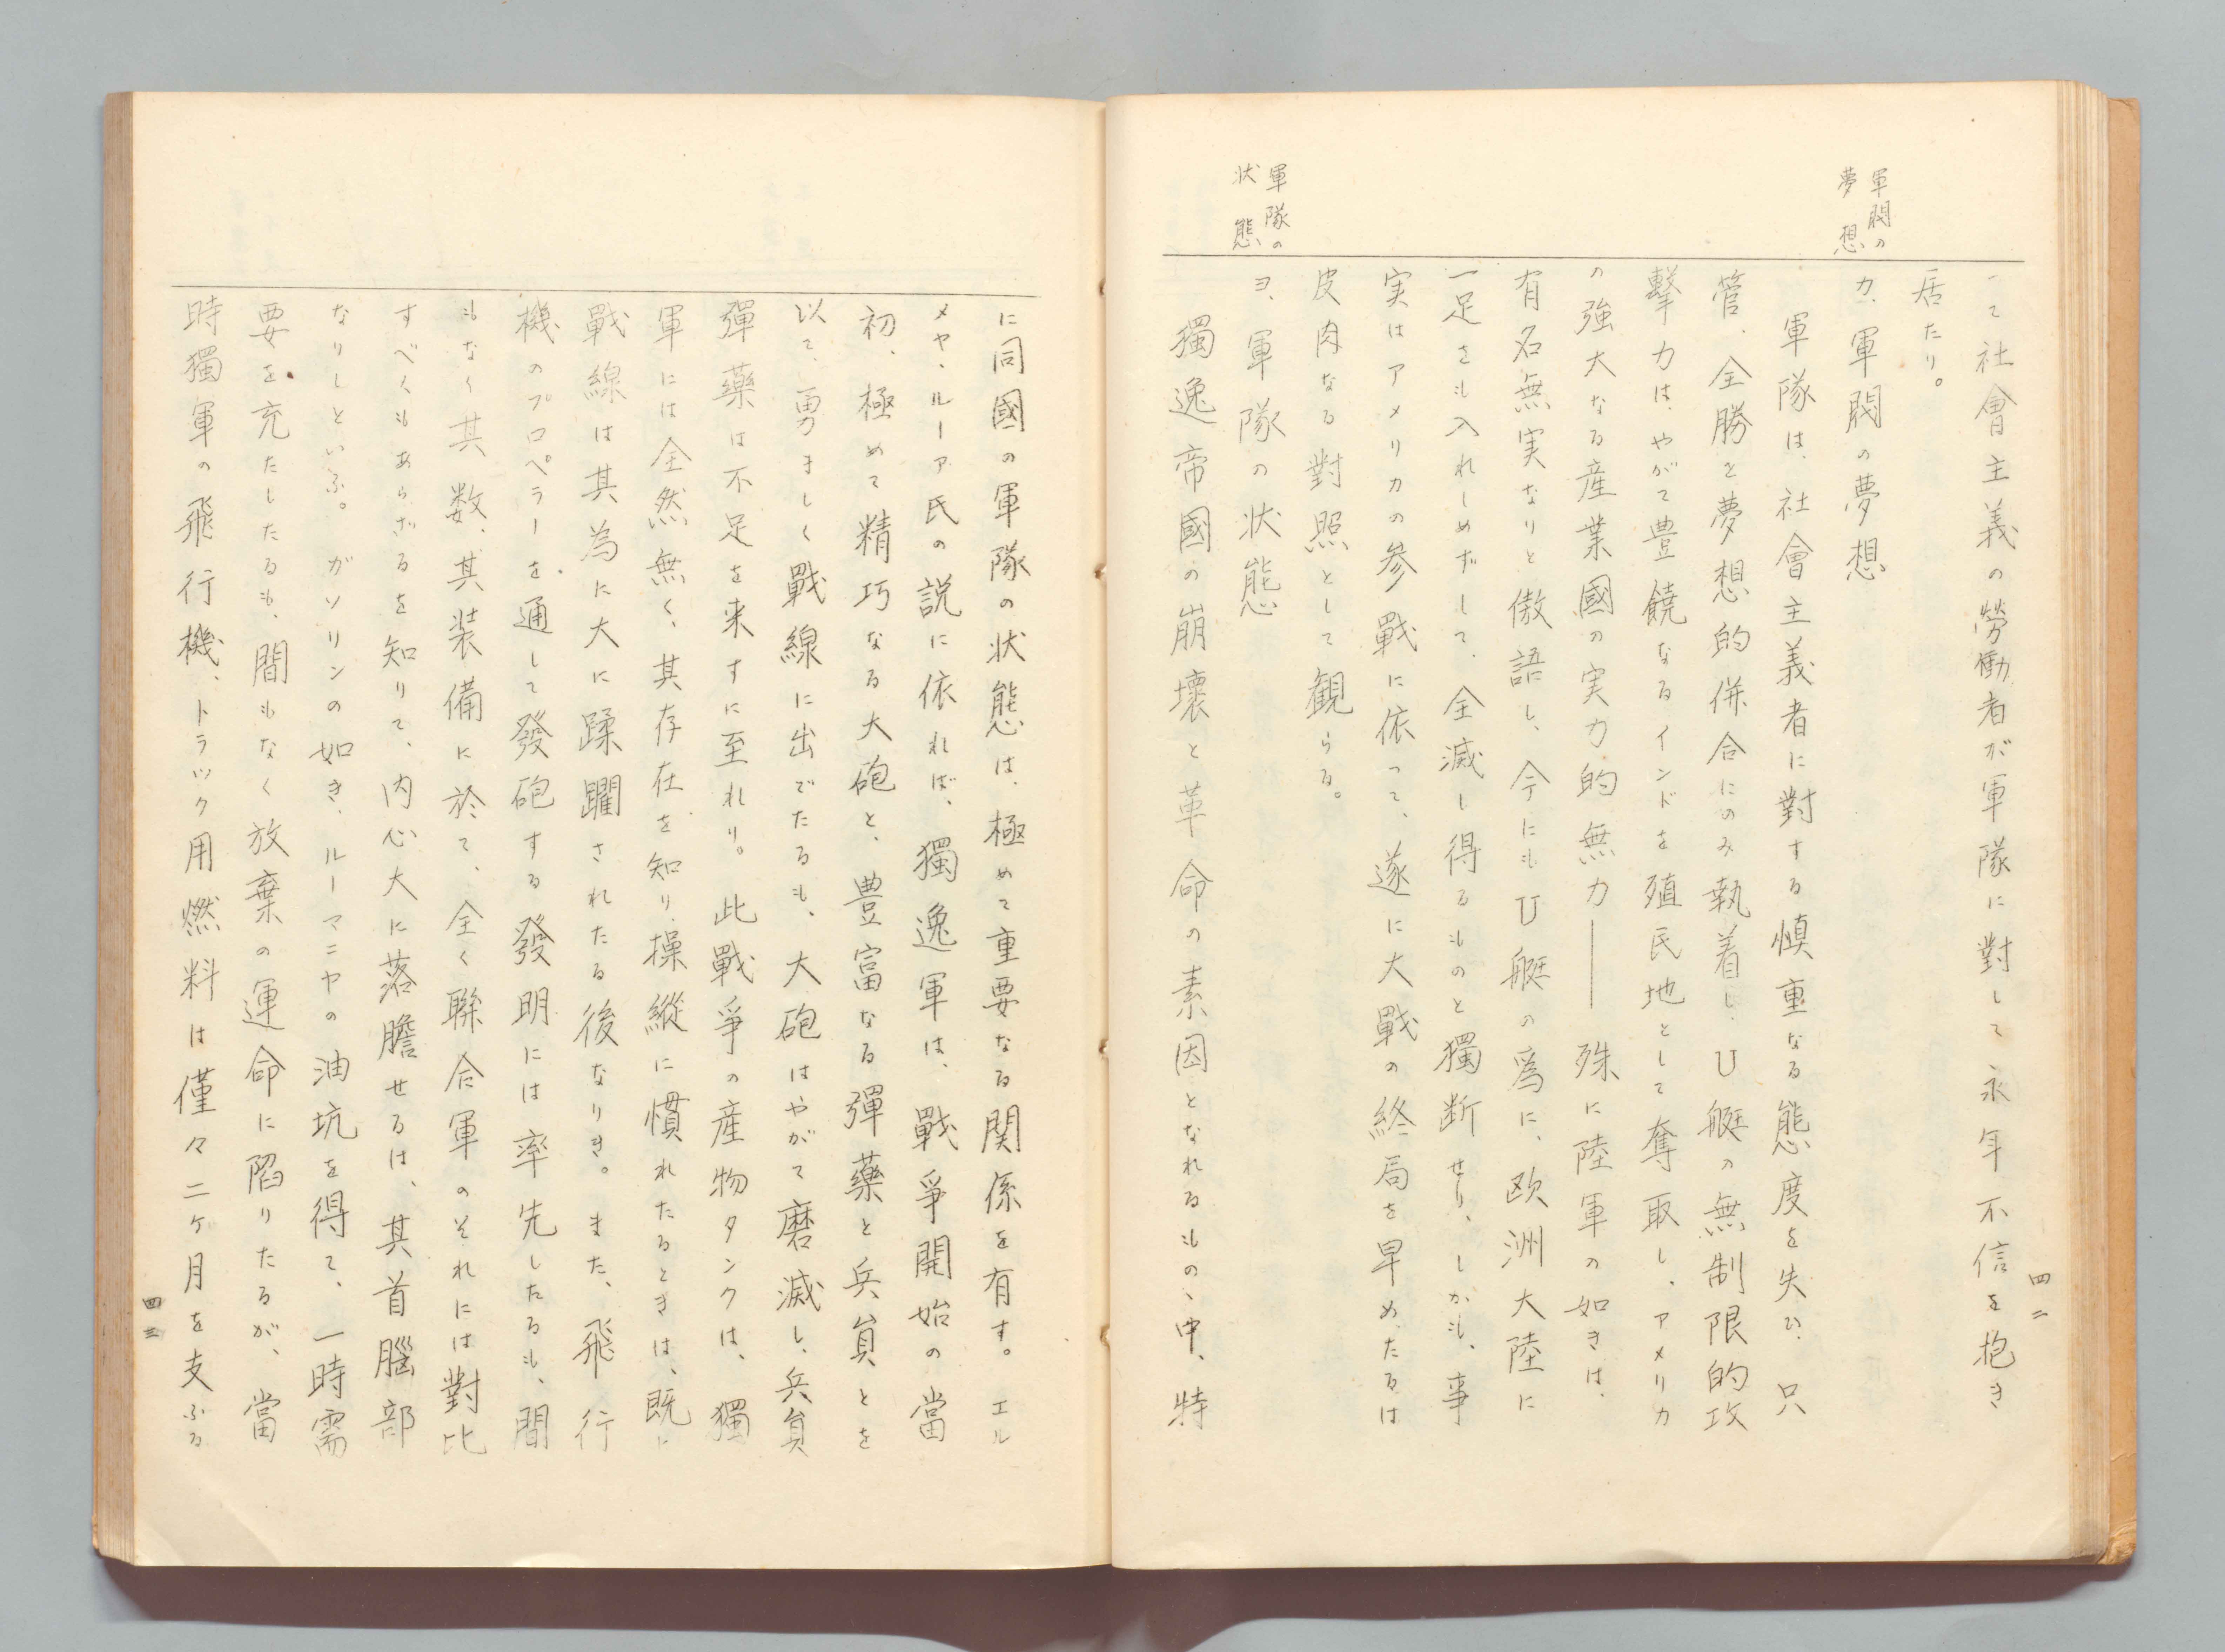 四二
軍閥の
夢想
軍隊の
状態
って社會主義の勞働者が軍隊に對して永年不信を抱き
居たり。
カ、軍閥の夢想
軍隊は、社會主義者に對する慎重なる態度を失ひ、只
管、全勝を夢想的併合にのみ執着し、U艇の無制限的攻
擊力は、やがて豊饒なるインドを殖民地として奪取し、アメリカ
の強大なる産業國の実力的無力——殊に陸軍の如きは、
有名無実なりと傲語し、今にもU艇の爲に、欧洲大陸に
一足さも入れしめずして、全滅し得るものと獨断せり、しかも、事
実はアメリカの参戰に依って、遂に大戰の終局を早めたるは
皮肉なる對照として観らる。
ヨ、軍隊の状態
獨逸帝國の崩壞と革命の素因となれるもの、中、特
に同國の軍隊の状態は、極めて重要なる関係を有す。エル
メヤ、ルーア氏の説に依れば、獨逸軍は、戰爭開始の當
初、極めて精巧なる大砲と、豊富なる彈藥と兵員とを
以て、勇ましく戰線に出でたるも、大砲はやがて磨滅し、兵員
彈藥は不足を来すに至れり。此戰爭の産物タンクは、獨
軍には全然無く、其存在を知り、操縱に慣れたるときは、既に
戰線は其為に大に蹂躙されたる後なりき。また、飛行
機のプロペラーを通して發砲する發明には率先したるも、間
もなく其数、其装備に於て、全く聯合軍のそれには對比
すべくもあらざるを知りて、内心大に落膽せるは、其首腦部
なりしといふ。ガソリンの如き、ルーマニヤの油坑を得て、一時需
要を充たしたるも、間もなく放棄の運命に陷りたるが、當
時獨軍の飛行機、トラック用燃料は僅々二ケ月を支ふる
四三